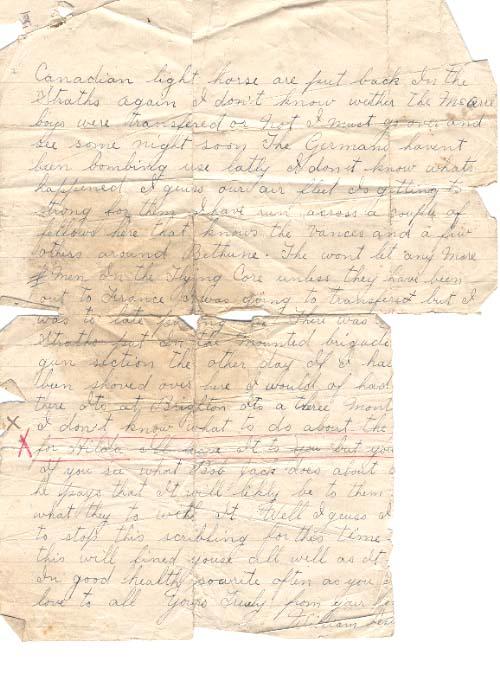 Canadian light horse are put back In the
Straths again I don't know wether the McCree
boys were transfered or not I must go over and
see some night soon The Germans havent
been bombing use latly I don't know whats
happened I guess our air fleet is getting to
strong for them I have run across a couple of
fellows here that knows the Vances and a few
others around Bethune. The wont let any more
men In the Flying Core unless they have been
out to France I was going to transfered but I
was to late There was
Straths put in the mounted brigade
gun section the other day If I ha
been shoved over here I would of had
there Its at Brighton Its a three Mont
I don't know what to do about the
for Hilda Ill leave It to you but you
if you see what Bob Jack does about
he says that It will likely be to them
what they to with It Well I guess I
to stop this scribling for this time
this will fined youse all well as It
In good health so write often as you
love to all Yours Truly from your
William